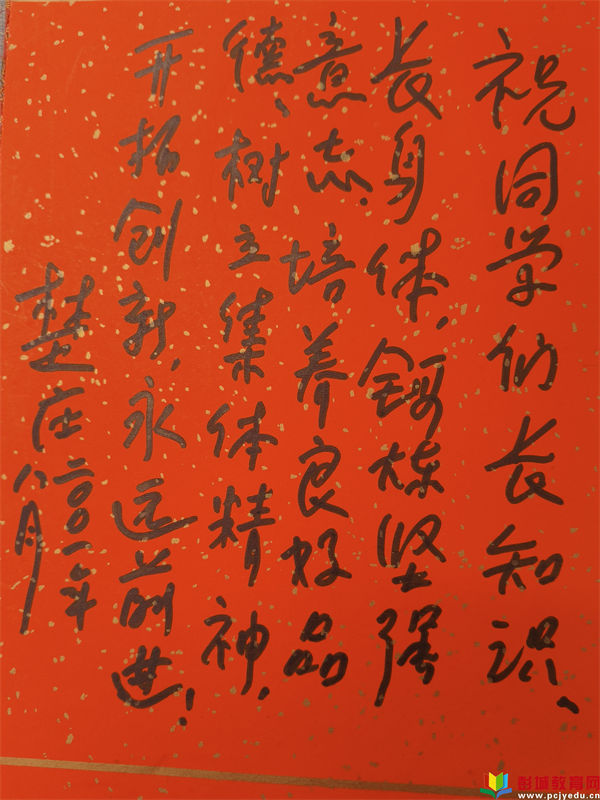 祝同学们长知识、
长身体,锻炼坚强
意志,培养良好品
德、树立集体精神,
开拓创新,永远前进!
楚庄
二〇〇一年
八月
彭城教育网
www.pcjyedu.cn